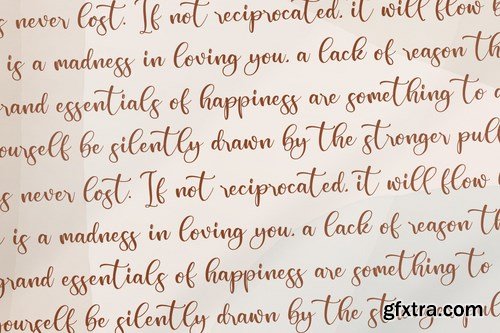 s never lost. If not reciprocated, it will flow b
is a madness in loving you. a lack of reason th
grand essentials of happiness are something to d
yourself be silently drawn by the stronger pull
s never lost. If not reciprocated, it will flow
is a madness in loving you. a lack of reason th
grand essentials of happiness are something to
yourself be silently drawn by the st
gfxtra.com